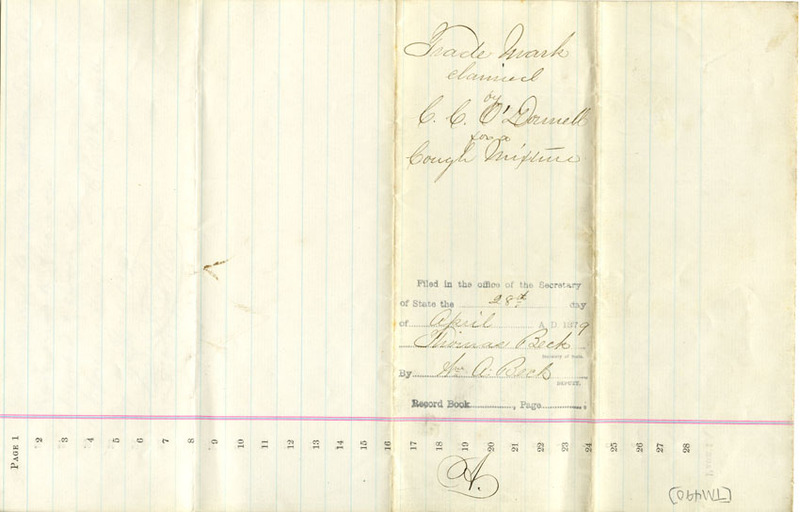 Trade Mark
claimed
by
C. C. O'Donnell
for a
Cough Mixture
Filed in the office of the Secretary
of State the 28th day
of April A D 1879
Thomas Beck
Secretary of State.
By Wm A. Beck
DEPUTY.
Record Book , Page ;
PAGE 1 2 3 4 5 6 7 8 9 10 11 12 13 14 15 16 17 18 19 20 21 22 23 24 25 26 27 28
A.
[TM490]